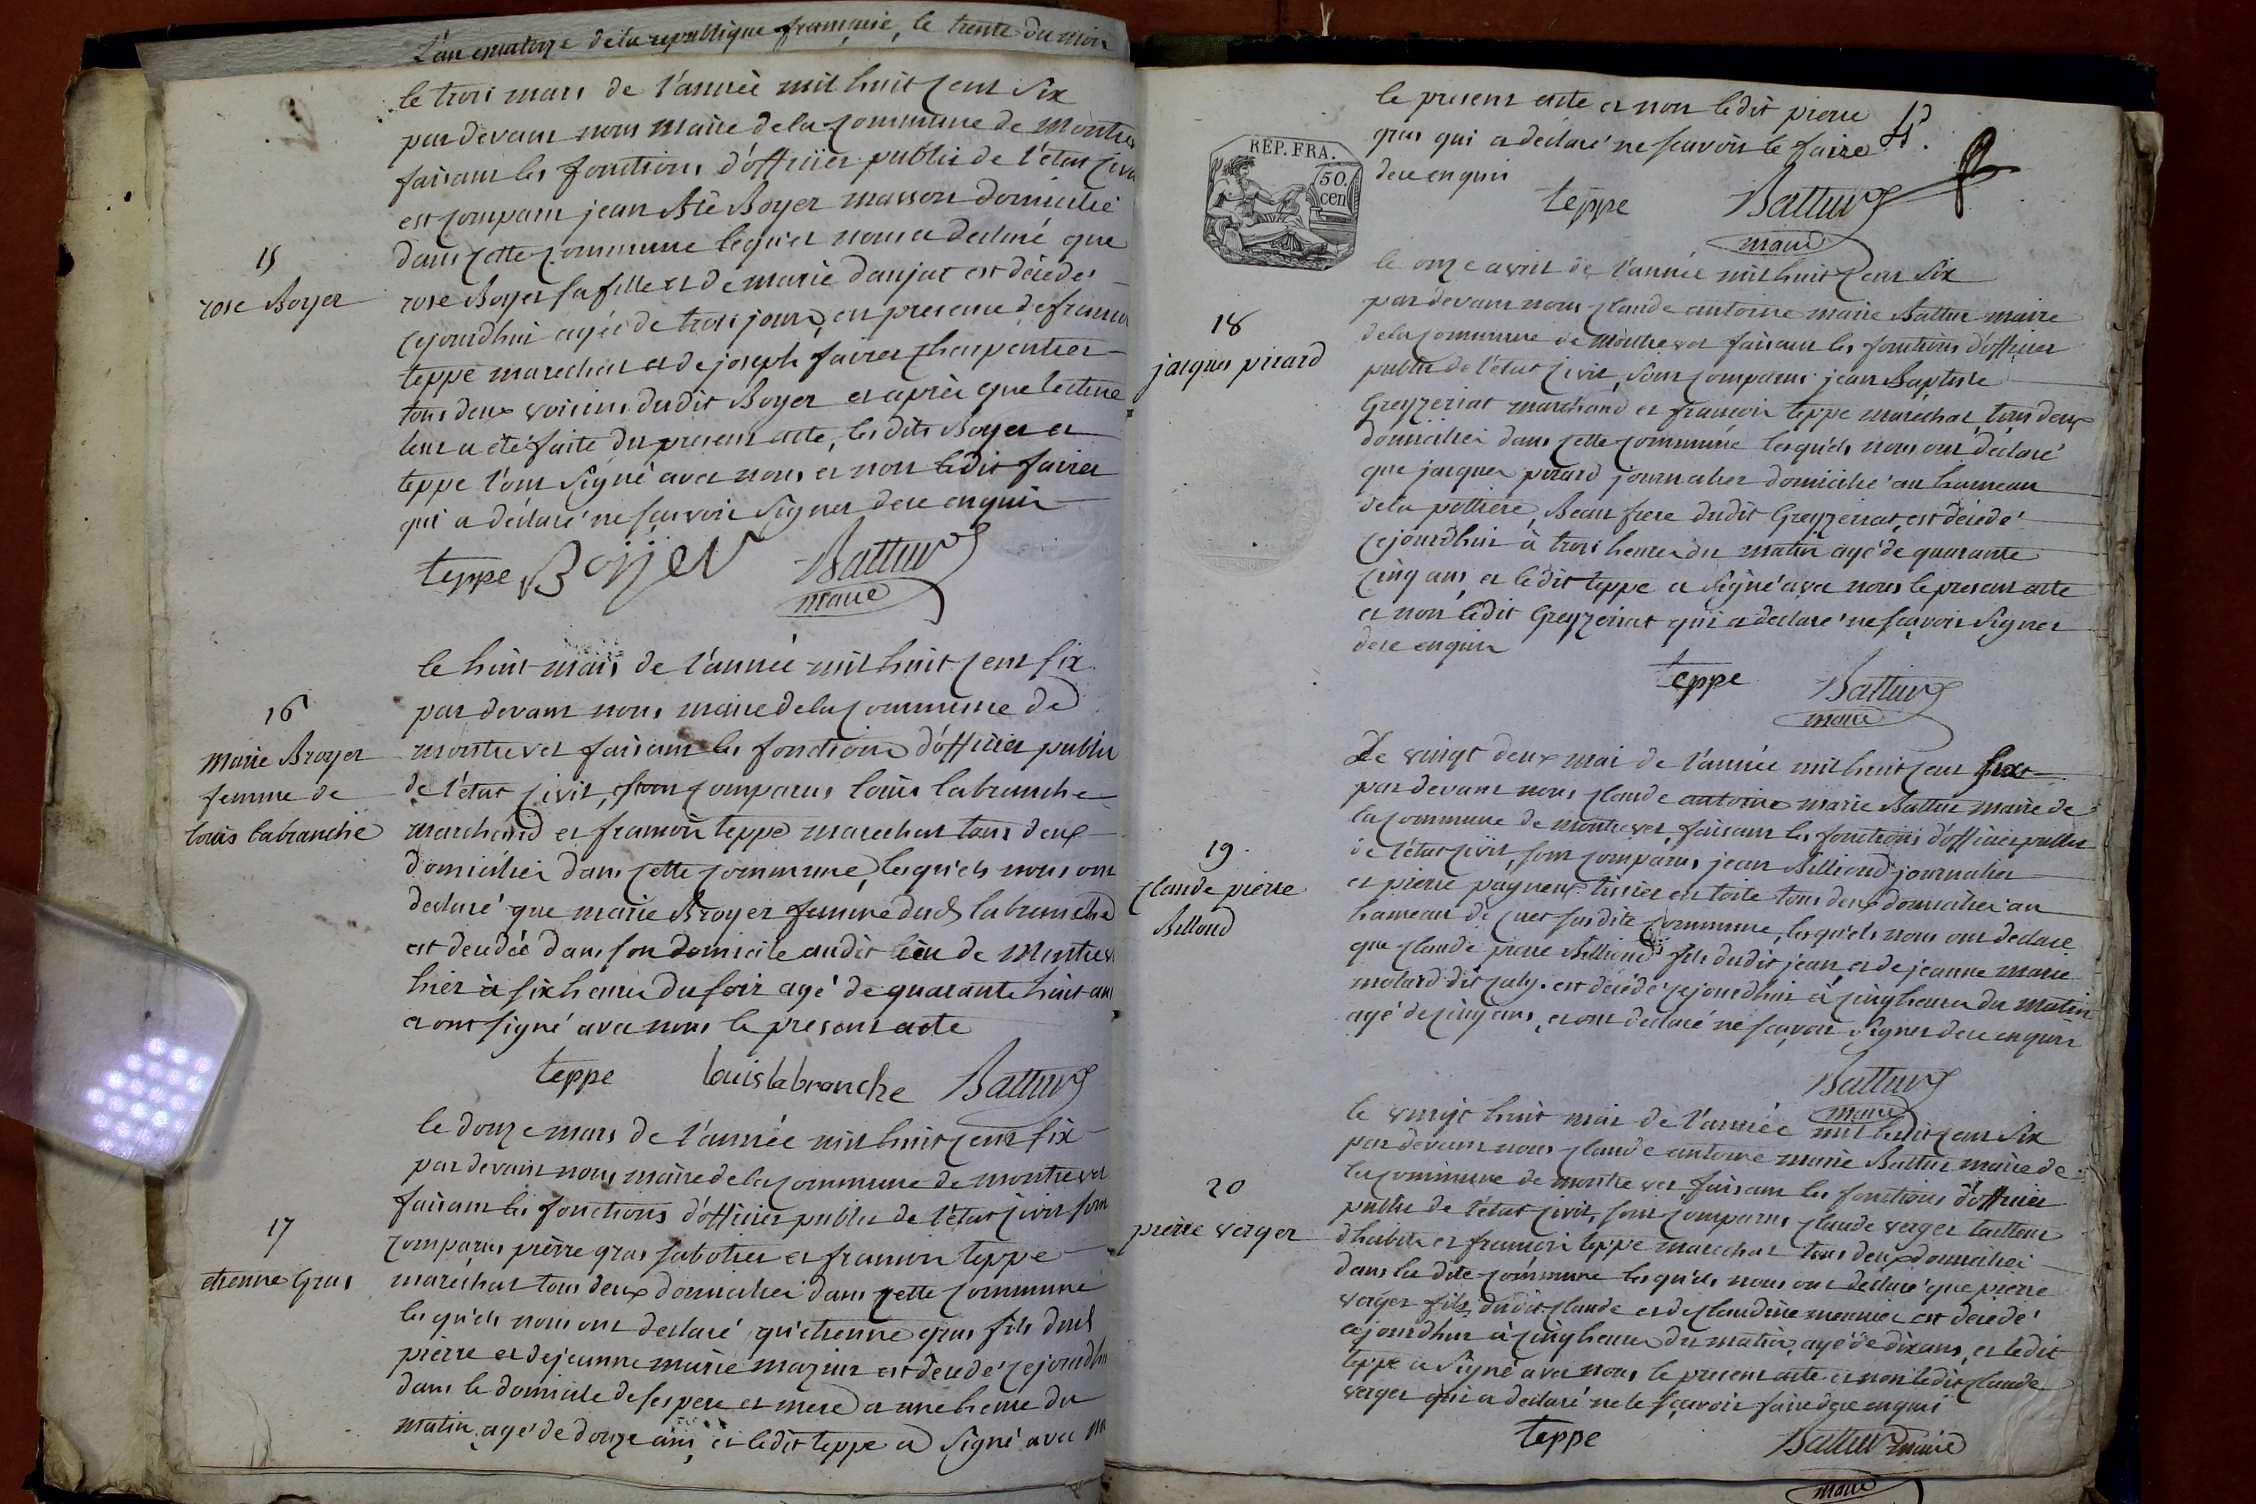 L'an quatorze de la republique française, le trente du mois
le trois mars de l'année mil huit cent six
par devant nous maire de la commune de Montre
faisant les fonctions d'officier public de l'état civil
est comparu jean Bte Boyer masson domicilié
dans cette commune lequel nous a declaré que
15
rose Boyer
rose Boyer sa fille et de marie danjat est décédée
cejourdhui agée de trois jours, en presence de francois
teppe marechal et de joseph favier charpentier
tous deux voisins dudit Boyer et après que lecture
leur a été faite du present acte, lesdits Boyer et
teppe l'ont signé avec nous et non ledit favier
qui a déclaré ne scavoir signer de ce enquis
teppe Boÿer Battur
maire
le huit mars de l'année mil huit cent six
par devant nous maire de la commune de
16
marie Broyer
femme de
louis labranche
montrevel faisant les fonctions d'officier public
de l'état civil, sont comparus louis labranche
marchand et francois teppe marechal tous deux
domiciliés dans cette commune, lesquels nous ont
declaré que marie Broyer femme dud labranche
est decédée dans son domicile audit lieu de Montrevel
hier à six heures du soir agé de quarante huit ans
et ont signé avec nous le present acte
teppe louis labranche Battur
le douze mars de l'année mil huit cent six
par devant nous maire de la commune de montrevel
faisant les fonctions d'officier public de l'état civil sont
17
etienne Gras
comparus pierre gras sabotier et francois teppe
maréchal tous deux domiciliés dans cette commune
lesquels nous ont declaré qu'etienne gras fils dud
pierre et de jeanne marie mazuir est decedé cejourdhui
dans le domicile de ses pere et mere a une heure du
matin, agé de douze ans, et ledit teppe a signé avec nous
le present acte et non ledit pierre
gras qui a déclaré ne scavoir le faire
de ce enquis
REP. FRA.
50.
cen
teppe Battur
maire
le onze avril de l'année mil huit cent six
par devant nous claude antoine marie Battur maire
18
jacques pirard
de la commune de montrevel faisant les fonctions d'officier
public de l'état civil, sont comparus jean Baptiste
Greyzeriat marchand et francois teppe maréchal, tous deux
domiciliés dans cette commune lesquels nous ont déclaré
que jacques pirard journalier domicilié au hameau
de la pottiere, Beau frere dudit Greyzeriat, est décédé
cejourdhui à trois heures du matin agé de quarante
cinq ans, et ledit teppe a signé avec nous le present acte
et non ledit Greyzeriat qui a declaré ne scavoir signer
de ce enquis
teppe Battur
maire
Le vingt deux mai de l'année mil huit cent six
par devant nous claude antoine marie Battur maire de
la commune de montrevel, faisant les fonctions d'officier public
19
claude pierre
Billoud
de l'état civil, sont comparus jean Billioud journalier
et pierre pagneux tissier en toile tous deux domiciliés au
hameau de cuet susdite commune, lesquels nous ont declaré
que claude pierre Billioud fils dudit jean et de jeanne marie
molard dit jaly. est décédé cejourdhui à cinq heures du matin
agé de cinq ans, et ont declaré ne scavoir signer de ce enquis
Battur
maire
le vingt huit mai de l'année mil huit cent six
par devant nous claude antoine marie Battur maire de
20
pierre verger
la commune de montrevel faisant les fonctions d'officier
public de l'état civil, sont comparus claude verger tailleur
d'habits et francois teppe marechal tous deux domiciliés
dans la dite commune lesquels nous ont declaré que pierre
verger fils dudit claude et de claudine meunier est décédé
cejourdhui à cinq heures du matin, agé de dix ans, et ledit
teppe a signé avec nous le present acte et non ledit claude
verger qui a declaré ne le scavoir faire de ce enquis
teppe Battur maire
maire